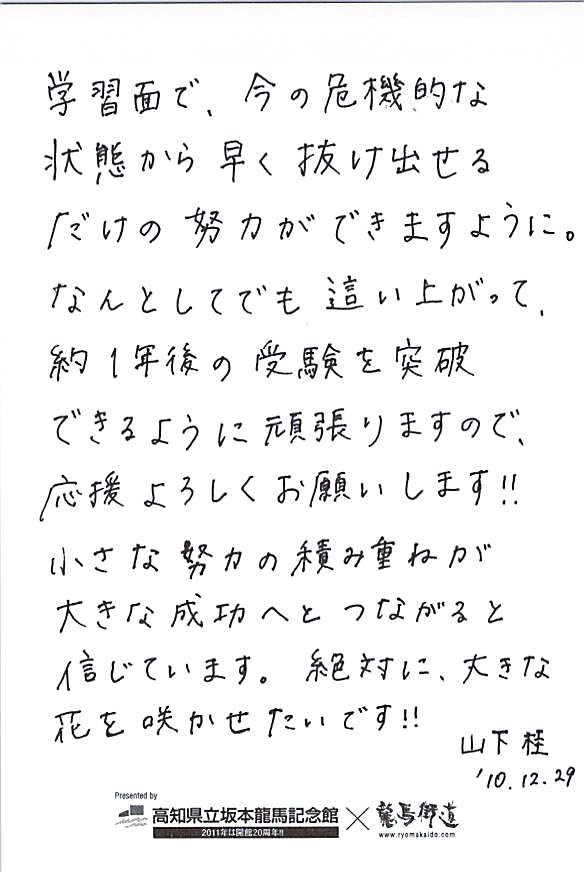 学習面で、今の危機的な
状態から早く抜け出せる
だけの努力ができますように。
なんとしてでも這い上がって、
約1年後の受験を突破
できるように頑張りますので、
応援よろしくお願いします!!
小さな努力の積み重ねが
大きな成功へとつながると
信じています。絶対に、大きな
花を咲かせたいです!!
山下桂
'10.12.29
Presented by
高知県立坂本龍馬記念館×龍馬街道
2011年は開館20周年!!
www.ryomakaido.com